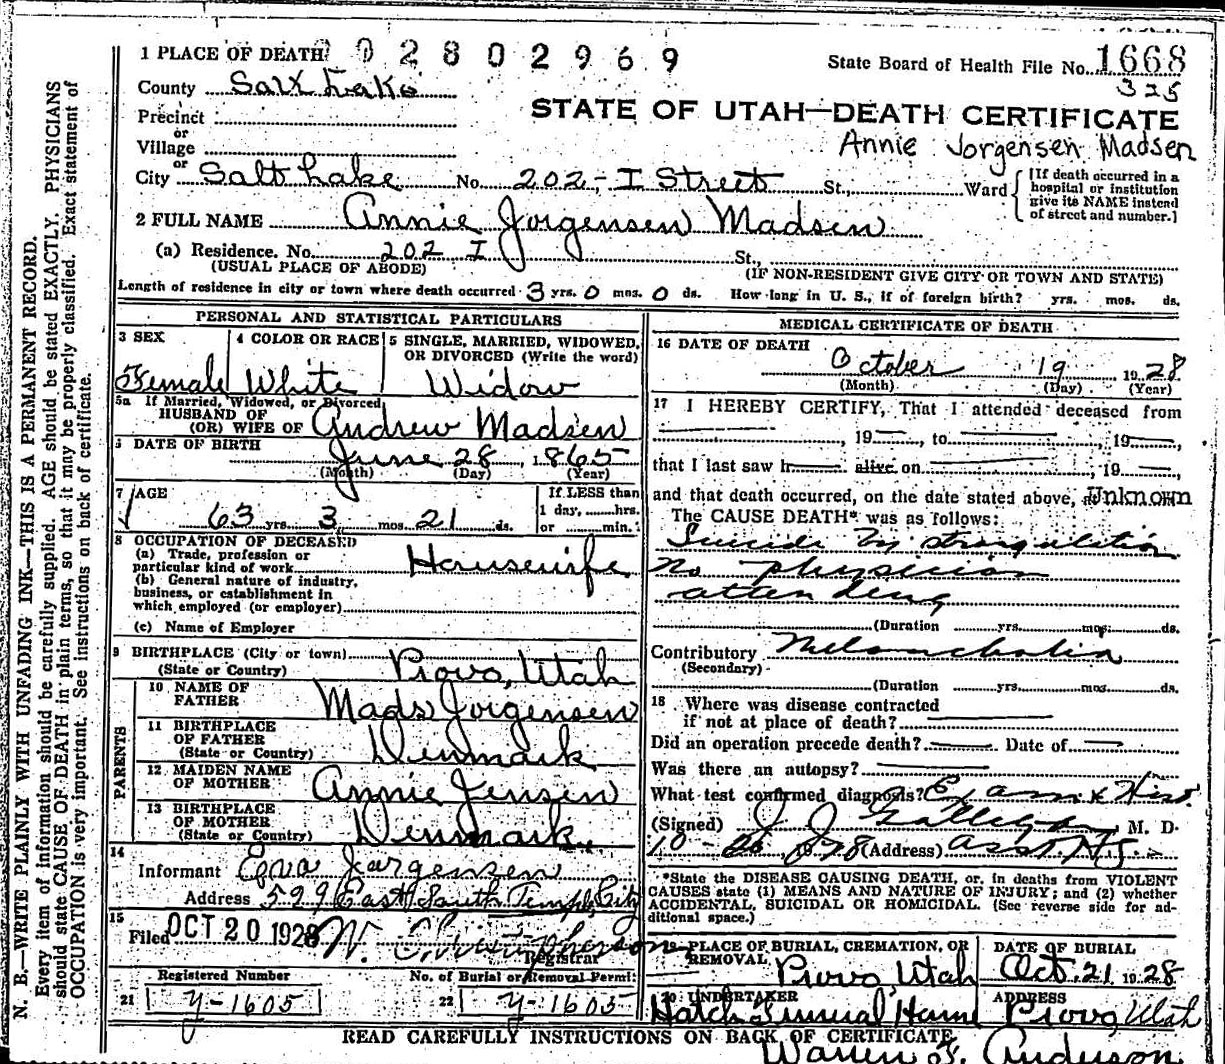 1 PLACE OF DEATH 0 2 8 0 2 9 6 9
State Board of Health File No. 1668
325
County Salt Lake
STATE OF UTAH—DEATH CERTIFICATE
Precinct
or
Village
Annie Jorgensen Madsen
or
City Salt Lake No. 202-I Street St., Ward
[If death occurred in a hospital or institution give its NAME instead of street and number.]
2 FULL NAME Annie Jorgensen Madsen
(a) Residence. No. 202 I St.,
(USUAL PLACE OF ABODE) (IF NON-RESIDENT GIVE CITY OR TOWN AND STATE)
Length of residence in city or town where death occurred 3 yrs. 0 mos. 0 ds. How long in U. S., if of foreign birth? yrs. mos. ds.
PERSONAL AND STATISTICAL PARTICULARS
3 SEX 4 COLOR OR RACE 5 SINGLE, MARRIED, WIDOWED,
OR DIVORCED (Write the word)
Female White Widow
5a If Married, Widowed, or Divorced
HUSBAND OF
(OR) WIFE OF Andrew Madsen
6 DATE OF BIRTH
June 28, 1865
(Month) (Day) (Year)
7 AGE If LESS than
1 day, hrs.
63 yrs. 3 mos. 21 ds. or min.
8 OCCUPATION OF DECEASED
(a) Trade, profession or
particular kind of work Housewife
(b) General nature of industry,
business, or establishment in
which employed (or employer)
(c) Name of Employer
9 BIRTHPLACE (City or town)
(State or Country) Provo, Utah
PARENTS
10 NAME OF
FATHER Mads Jorgensen
11 BIRTHPLACE
OF FATHER
(State or Country) Denmark
12 MAIDEN NAME
OF MOTHER Annie Jensen
13 BIRTHPLACE
OF MOTHER
(State or Country) Denmark
14
Informant Enva Jorgensen
Address 529 East South Temple, City
15
Filed OCT 20 1928
Registrar
Registered Number No. of Burial or Removal Permit
21 Y-1605 22 Y-1605
MEDICAL CERTIFICATE OF DEATH
16 DATE OF DEATH
October 19, 1928
(Month) (Day) (Year)
17 I HEREBY CERTIFY, That I attended deceased from
, 19 , to , 19
that I last saw h alive on , 19
and that death occurred, on the date stated above, at Unknown
The CAUSE DEATH* was as follows:
Suicide by strangulation
No physician
attending
(Duration yrs. mos. ds.
Contributory Melancholia
(Secondary)
(Duration yrs. mos. ds.
18 Where was disease contracted
if not at place of death?
Did an operation precede death? Date of
Was there an autopsy?
What test confirmed diagnosis? Exam & Hist.
(Signed) J. J. Galligan, M. D.
10-20 1928 (Address)
*State the DISEASE CAUSING DEATH, or, in deaths from VIOLENT
CAUSES state (1) MEANS AND NATURE OF INJURY; and (2) whether
ACCIDENTAL, SUICIDAL OR HOMICIDAL. (See reverse side for ad-
ditional space.)
19 PLACE OF BURIAL, CREMATION, OR
REMOVAL
Provo, Utah
DATE OF BURIAL
Oct. 21 1928
20 UNDERTAKER ADDRESS
Hatch Funeral Home Provo Utah
READ CAREFULLY INSTRUCTIONS ON BACK OF CERTIFICATE
Warren F. Anderson
N. B.—WRITE PLAINLY WITH UNFADING INK—THIS IS A PERMANENT RECORD.
Every item of information should be carefully supplied. AGE should be stated EXACTLY. PHYSICIANS
should state CAUSE OF DEATH in plain terms, so that it may be properly classified. Exact statement of
OCCUPATION is very important. See instructions on back of certificate.